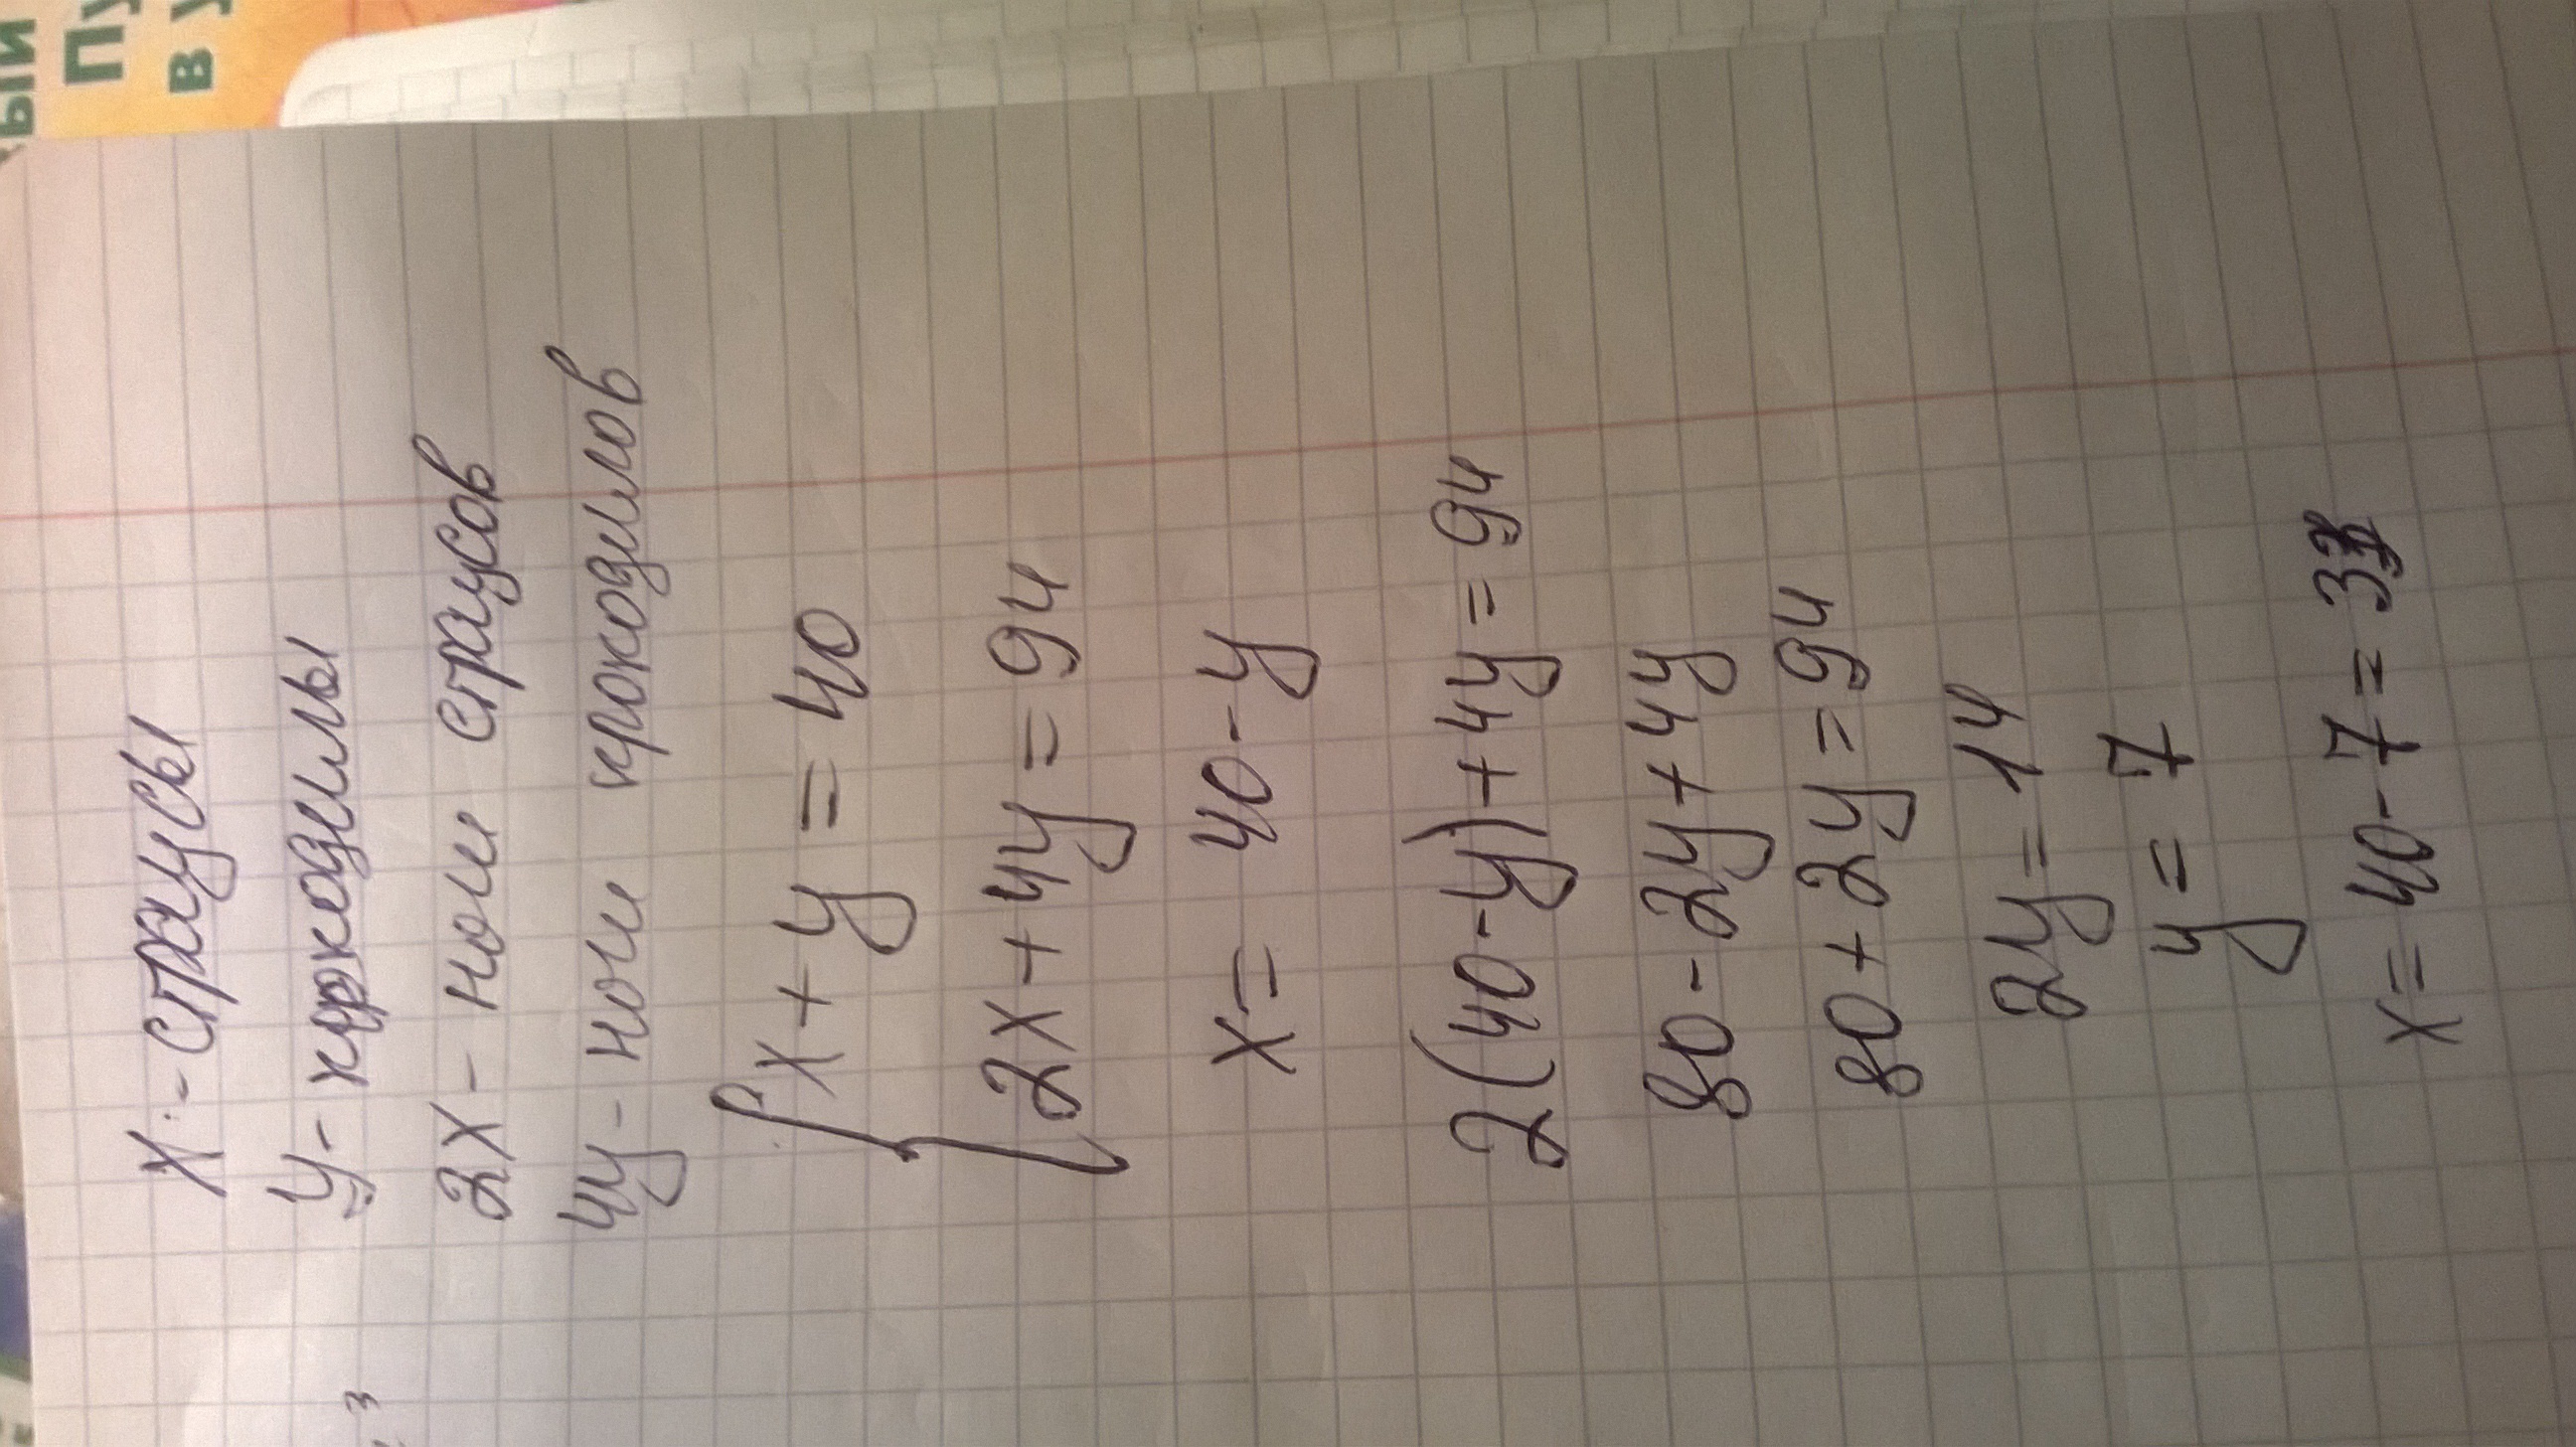 x - страусы
y - крокодилы
2x - ноги страусов
4y - ноги крокодилов
{ x + y = 40
2x + 4y = 94
x = 40 - y
2(40 - y) + 4y = 94
80 - 2y + 4y
80 + 2y = 94
2y = 14
y = 7
x = 40 - 7 = 33
ый
Пу
в у
3